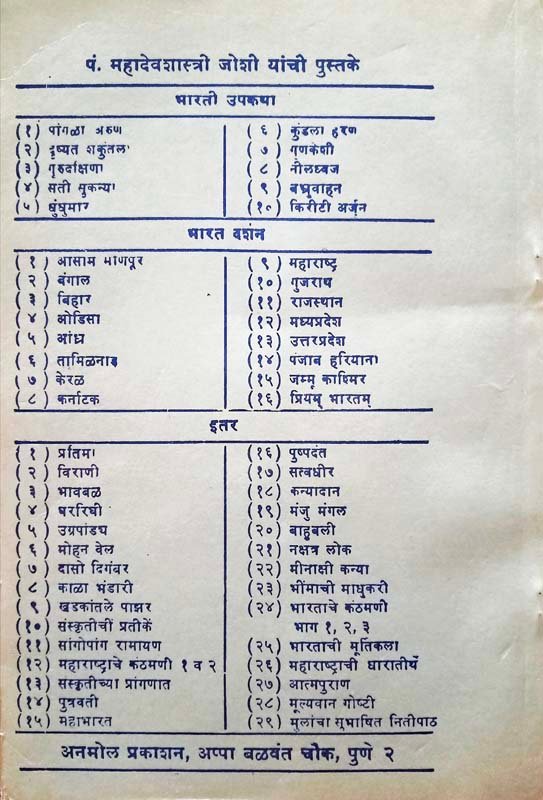 पं. महादेवशास्त्री जोशी यांची पुस्तके
भारती उपकथा
(१) पांगळा अरुण
(२) दृष्यत शकुंतला
(३) गुरुदक्षिणा
(४) सती सुकन्या
(५) धुंधुमार
(६) कुंडला हरण
(७) गुणकेशी
(८) नीलध्वज
(९) बभ्रुवाहन
(१०) किरीटी अर्जुन
भारत दर्शन
(१) आसाम माणिपूर
(२) बंगाल
(३) बिहार
(४) ओडिसा
(५) आंध्र
(६) तामिळनाड
(७) केरळ
(८) कर्नाटक
(९) महाराष्ट्र
(१०) गुजराथ
(११) राजस्थान
(१२) मध्यप्रदेश
(१३) उत्तरप्रदेश
(१४) पंजाब हरियाना
(१५) जम्मू काश्मिर
(१६) प्रियम् भारतम्
इतर
(१) प्रतिमा
(२) विराणी
(३) भावबळ
(४) घररिघी
(५) उग्रपांड्य
(६) मोहन वेल
(७) दासो दिगंबर
(८) काळा भंडारी
(९) खडकांतले पाझर
(१०) संस्कृतीचीं प्रतीकें
(११) सांगोपांग रामायण
(१२) महाराष्ट्राचे कंठमणी १ व २
(१३) संस्कृतीच्या प्रांगणात
(१४) पुत्रवती
(१५) महाभारत
(१६) पुष्पदंत
(१७) सत्वधीर
(१८) कन्यादान
(१९) मंजु मंगल
(२०) बाहुबली
(२१) नक्षत्र लोक
(२२) मीनाक्षी कन्या
(२३) भींमाची माधुकरी
(२४) भारताचे कंठमणी
भाग १, २, ३
(२५) भारताची मूर्तिकला
(२६) महाराष्ट्राची धारातीर्थे
(२७) आत्मपुराण
(२८) मूल्यवान गोष्टी
(२९) मुलांचा सुभाषित नितीपाठ
अनमोल प्रकाशन, अप्पा बळवंत चौक, पुणे २